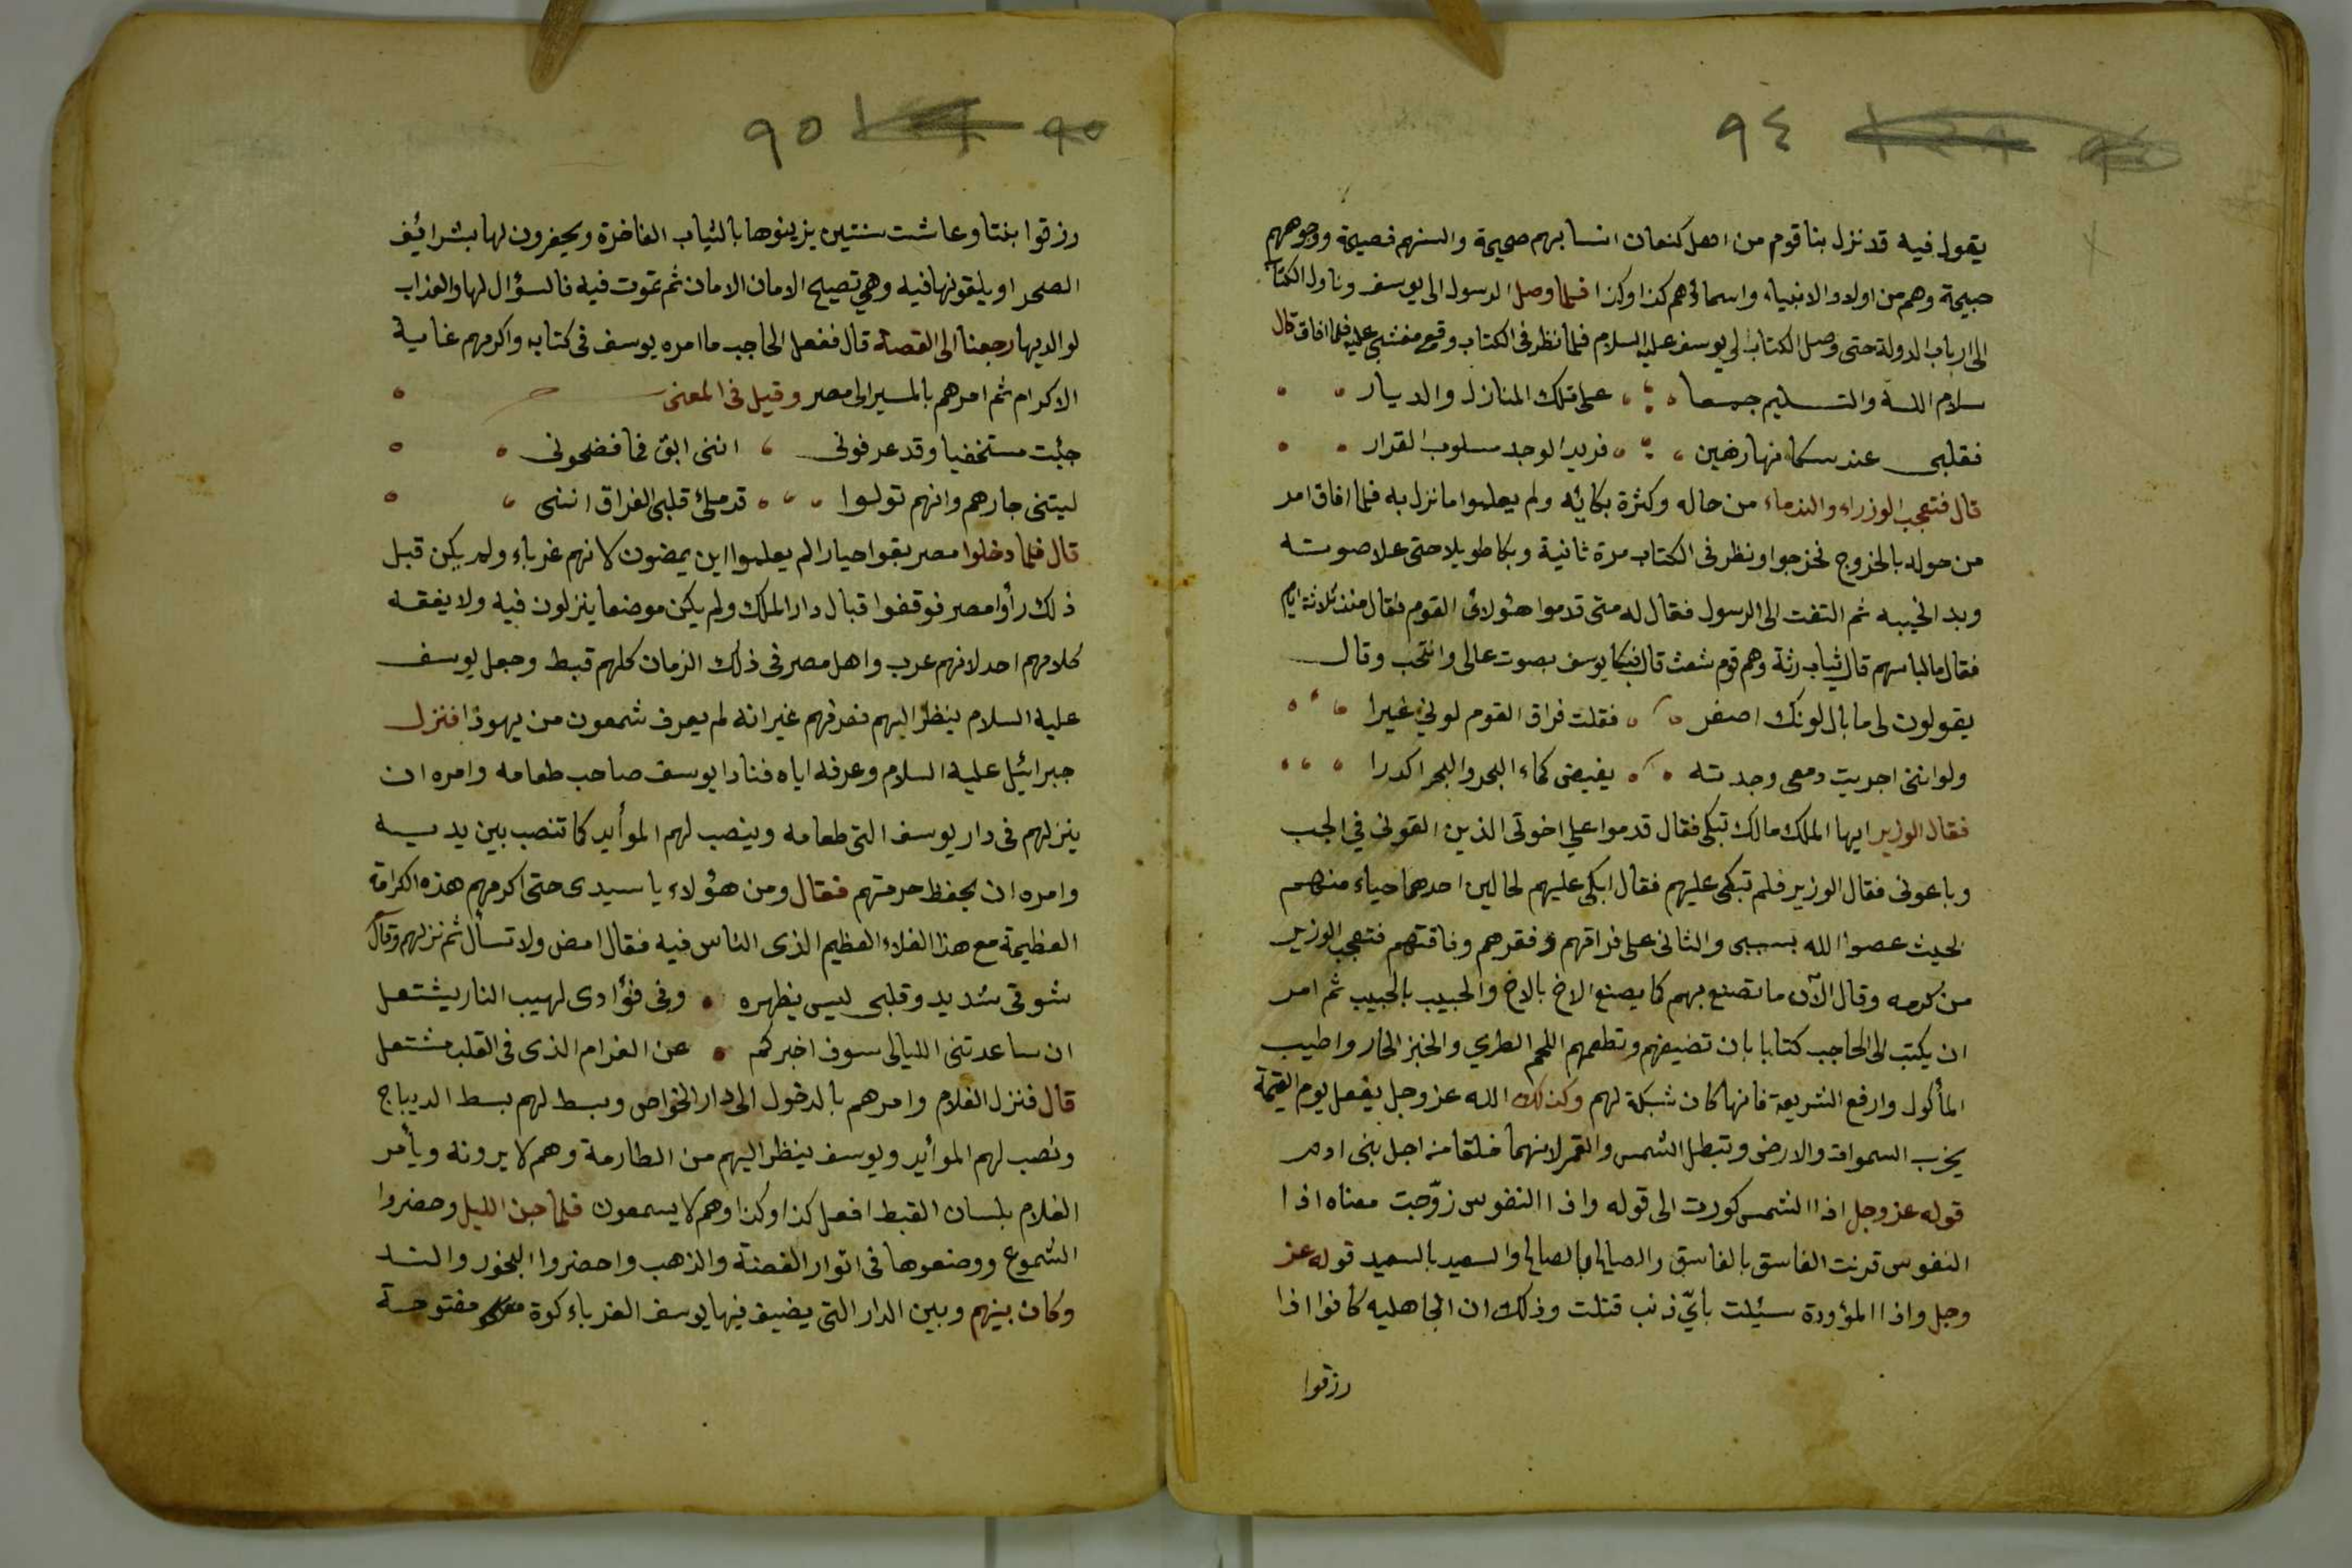 ٩٤
يقول فيه قد نزل بنا قوم من اهل كنعان انسابهم صحيحة والسنهم فصيحة ووجوههم
صبيحة وهم من اولاد الانبياء واسماؤهم كذا وكذا فلما وصل الرسول الى يوسف وناول الكتاب
الى ارباب الدولة حتى وصل الكتاب الى يوسف عليه السلام فلما نظر فى الكتاب وقع مغشى عليه فلما افاق قال
سلام الله والتسليم جمعا على تلك المنازل والديار
فقلبى عند سكانها رهين فريد الوجد مسلوب القرار
قال فتعجب الوزراء والندماء من حاله وكثرة بكائه ولم يعلموا ما نزل به فلما افاق امر
من حوله بالخروج فخرجوا ونظر فى الكتاب مرة ثانية وبكا طويلا حتى علا صوته
وبدا نحيبه ثم التفت الى الرسول فقال له متى قدموا هئولائ القوم فقال منذ ثلاثة ايام
فقال ما لباسهم قال ثياب رثة وهم قوم شعث قال فبكا يوسف بصوت عالى وانتحب وقال
يقولون لى ما بال لونك اصفر فقلت فراق القوم لونى غيرا
ولو اننى اجريت دمعى وجدته يفيض كماء البحر والبحر اكدرا
فقال الوزير ايها الملك مالك تبكى فقال قدموا على اخوتى الذين القونى في الجب
وباعونى فقال الوزير فلم تبكى عليهم فقال ابكى عليهم لحالين احدهما حياء منهم
لحيث عصوا الله بسببى والثانى على فراقهم وفقرهم وفاقتهم فتعجب الوزير
من كرمه وقال الآن ما تصنع بهم كما يصنع الاخ بالاخ والحبيب بالحبيب ثم امر
ان يكتب الى الحاجب كتابا بان تضيفهم وتطعمهم اللحم الطري والخبز الحار واطيب
المأكول وارفع الشريعة فانها كان شبكة لهم وكذلك الله عز وجل يفعل يوم القيمة
يخرب السموات والارض وتبطل الشمس والقمر لانهما خلقا من اجل بنى ادم
قوله عز وجل اذا الشمس كورت الى قوله واذا النفوس زوّجت معناه اذا
النفوس قرنت الفاسق بالفاسق والصالح بالصالح والسعيد بالسعيد قوله عز
وجل واذا المؤودة سئلت بايّ ذنب قتلت وذلك ان الجاهليه كانوا اذا
رزقوا
٩٥
رزقوا بنتا وعاشت سنتين يزينوها بالثياب الفاخرة ويحفرون لها بئرا فى
الصحرا ويلقونها فيه وهي تصيح الامان الامان ثم تموت فيه فالسؤال لها والعذاب
لوالديها رجعنا الى القصة قال ففعل الحاجب ما امره يوسف فى كتابه واكرمهم غاية
الاكرام ثم امرهم بالمسير الى مصر وقيل فى المعنى
جئت مستخفيا وقد عرفونى اننى ابق فما فضحونى
ليتنى جارهم وانهم تولوا قد ملئ قلبى الفراق اننى
قال فلما دخلوا مصر بقوا حيارا لم يعلموا اين يمضون كانهم غرباء ولم يكن قبل
ذلك رأوا مصر فوقفوا قبال دار الملك ولم يكن موضعا ينزلون فيه ولا يفقه
كلامهم احد لانهم عرب واهل مصر فى ذلك الزمان كلهم قبط وجعل يوسف
عليه السلام ينظر اليهم فعرفهم غير انه لم يعرف شمعون من يهوذا فنزل
جبرائيل عليه السلام وعرفه اياه فنادا يوسف صاحب طعامه وامره ان
ينزلهم فى دار يوسف التى طعامه وينصب لهم الموأيد كما تنصب بين يديه
وامره ان يحفظ حرمتهم فقال ومن هؤلاء يا سيدى حتى اكرمهم هذه الكرامة
العظيمة مع هذا الغلاء العظيم الذى الناس فيه فقال امض ولا تسأل ثم نزلهم وقال
شوقى شديد وقلبى ليس يظهره وفى فؤادى لهيب النار يشتعل
ان ساعدتنى الليالى سوف اخبركم عن الغرام الذى فى القلب مشتعل
قال فنزل الغلام وامرهم بالدخول الى دار الخواص وبسط لهم بسط الديباج
ونصب لهم الموأيد ويوسف ينظر اليهم من الطارمة وهم لا يرونه ويأمر
الغلام بلسان القبط افعل كذا وكذا وهم لا يسمعون فلما جن الليل وحضروا
الشموع ووضعوها فى اتوار الفضة والذهب واحضروا البخور والند
وكان بينهم وبين الدار التى يضيف فيها يوسف الغرباء كوة مفتوحة